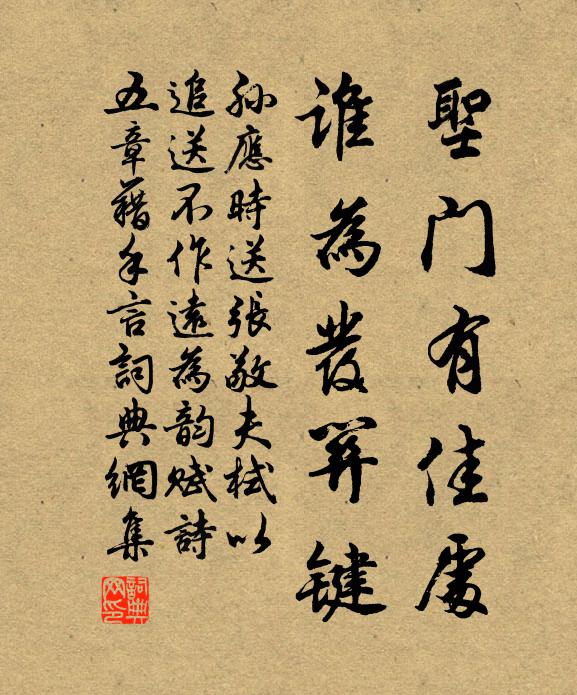 聖門有佳處
誰為發關鍵
孫應時送張敬夫栻以
追送不作遠為韵賦詩
五章藉手言詞典網集
詞典网印